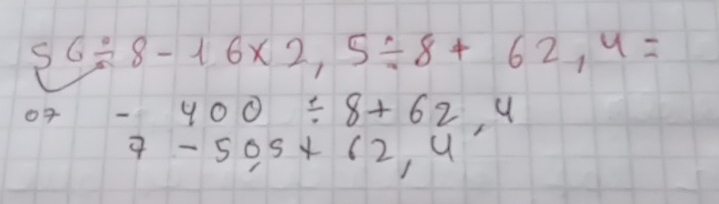 56÷8-16×2,5÷8+62,4=
07 - 400 ÷ 8+62,4
7 - 50,5+62,4